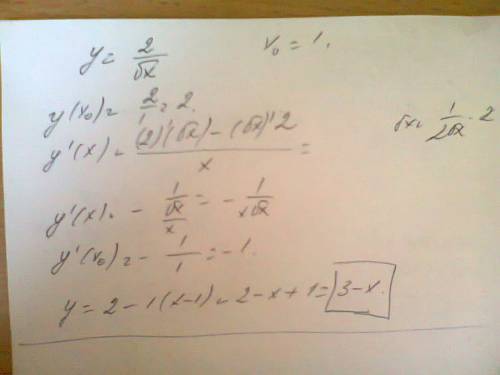 y = 2/√x    x₀ = 1.
y(x₀) = 2/1 = 2.
y'(x) = ((2)'(√x) - (√x)'2)/x =
√x = 1/(2√x) · 2
y'(x) = - (1/√x)/x = - 1/(x√x)
y'(x₀) = - 1/1 = -1.
y = 2 - 1(x-1) = 2 - x + 1 = 3 - x.